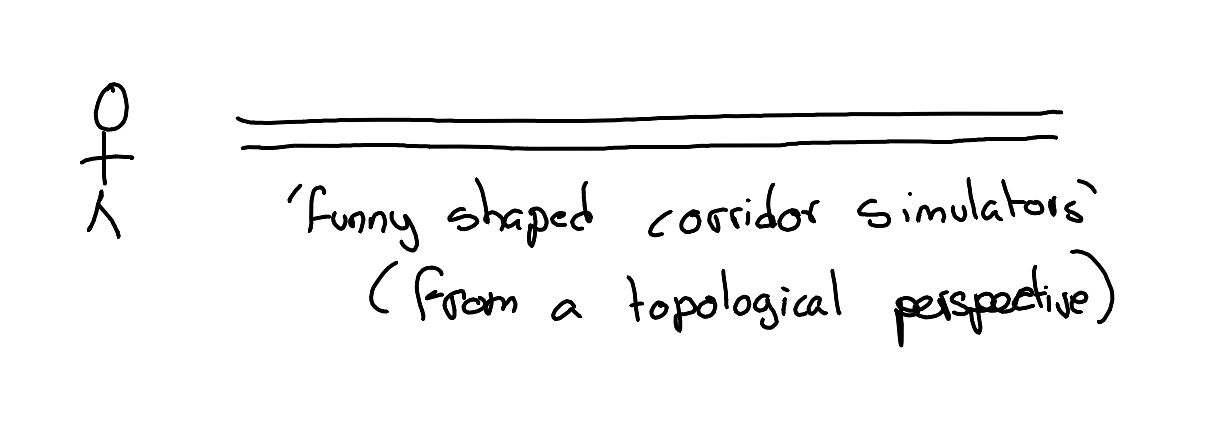 'funny shaped corridor simulators'
(from a topological perspective)